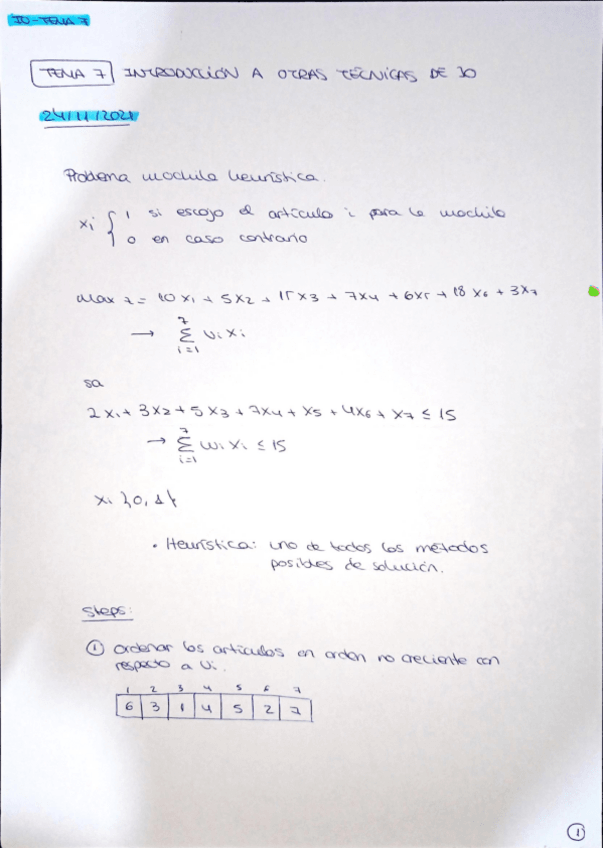 IO-TEMA 7
TEMA 7 INTRODUCCIÓN A OTRAS TÉCNICAS DE IO
24/11/2021
Problema mochila heurística.
xi { 1 si escojo el artículo i para la mochila
0 en caso contrario
Max z = 10x1 + 5x2 + 15x3 + 7x4 + 6x5 + 18x6 + 3x7
→ 7 Σ i=1 vi xi
sa
2x1 + 3x2 + 5x3 + 7x4 + x5 + 4x6 + x7 ≤ 15
→ 7 Σ i=1 wi xi ≤ 15
xi }0,1{
• Heurística: uno de todos los métodos
posibles de solución.
Steps:
① ordenar los artículos en orden no creciente con
respecto a vi.
1 2 3 4 5 6 7
6 3 1 4 5 2 7
1